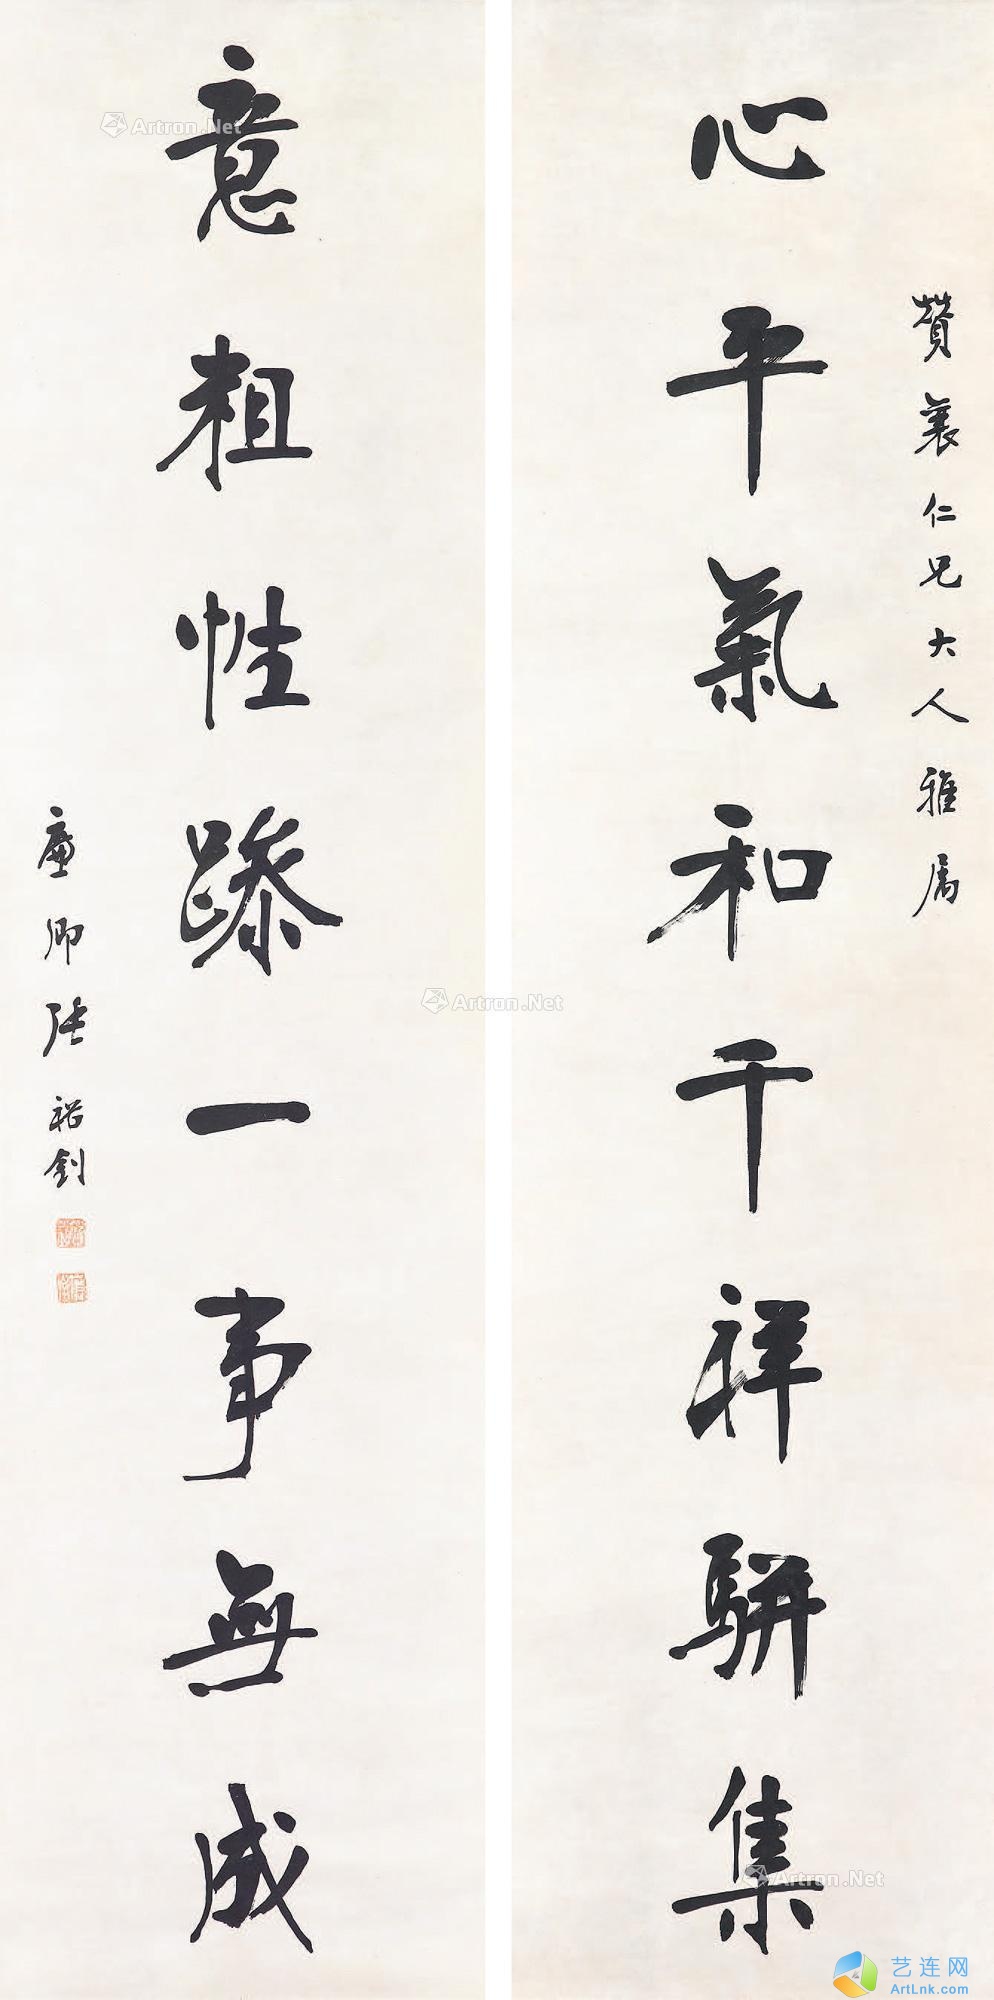 贊襄仁兄大人雅属
心平氣和千祥駢集
意粗性躁一事無成
廉卿張裕釗
Artron.Net
Artron.Net
Artron.Net
艺连网
ArtLnk.com